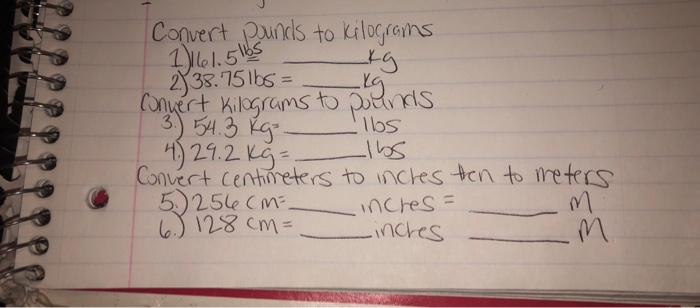 Convert pounds to kilograms
1.) 161.5 lbs ____ kg
2.) 38.75 lbs = ____ kg
Convert kilograms to pounds
3.) 54.3 kg = ____ lbs
4.) 29.2 kg = ____ lbs
Convert centimeters to inches then to meters
5.) 256 cm = ____ inches = ____ m
6.) 128 cm = ____ inches ____ m